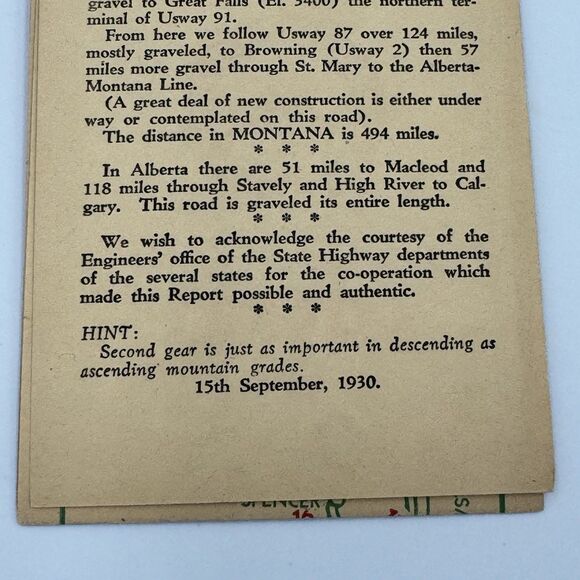 gravel to Great Falls (El. 3400) the northern ter-
minal of Usway 91.
From here we follow Usway 87 over 124 miles,
mostly graveled, to Browning (Usway 2) then 57
miles more gravel through St. Mary to the Alberta-
Montana Line.
(A great deal of new construction is either under
way or contemplated on this road).
The distance in MONTANA is 494 miles.
* * *
In Alberta there are 51 miles to Macleod and
118 miles through Stavely and High River to Cal-
gary. This road is graveled its entire length.
* * *
We wish to acknowledge the courtesy of the
Engineers' office of the State Highway departments
of the several states for the co-operation which
made this Report possible and authentic.
* * *
HINT:
Second gear is just as important in descending as
ascending mountain grades.
15th September, 1930.
SPENCER
16